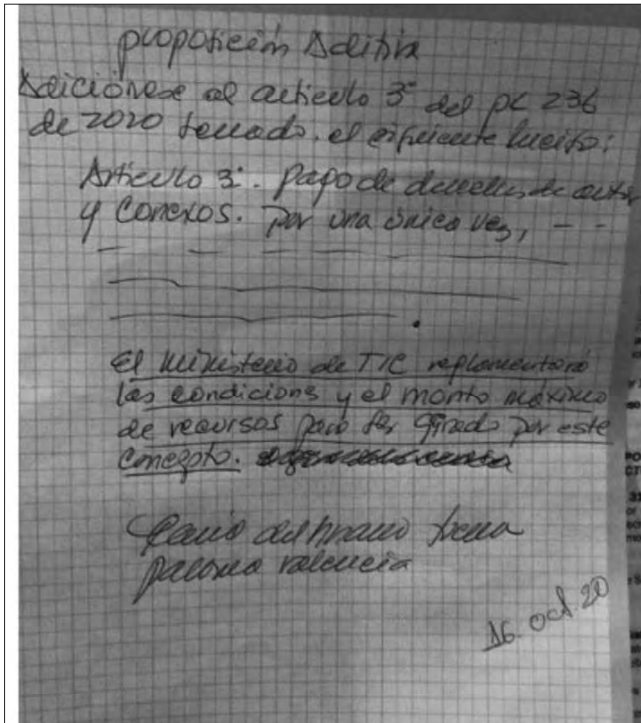 proposición Aditiva
Adiciónese al artículo 3º del PL 236
de 2020 senado. el siguiente inciso:
Artículo 3º. Pago de derechos de autor
y Conexos. Por una única vez, - -
El Ministerio de TIC reglamentará
las condiciones y el monto máximo
de recursos para ser girado por este
concepto.
paloma valencia
16. oct. 20